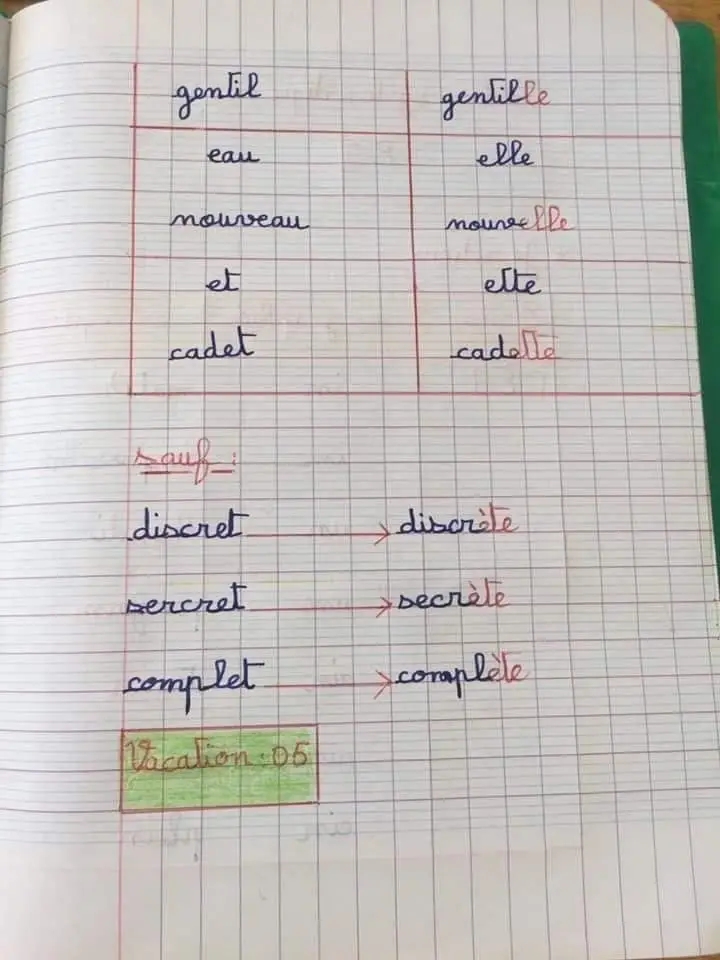 gentil gentille
eau elle
nouveau nouvelle
et ette
cadet cadette
sauf :
discret discrète
sercret secrète
complet complète
Vacation : 05